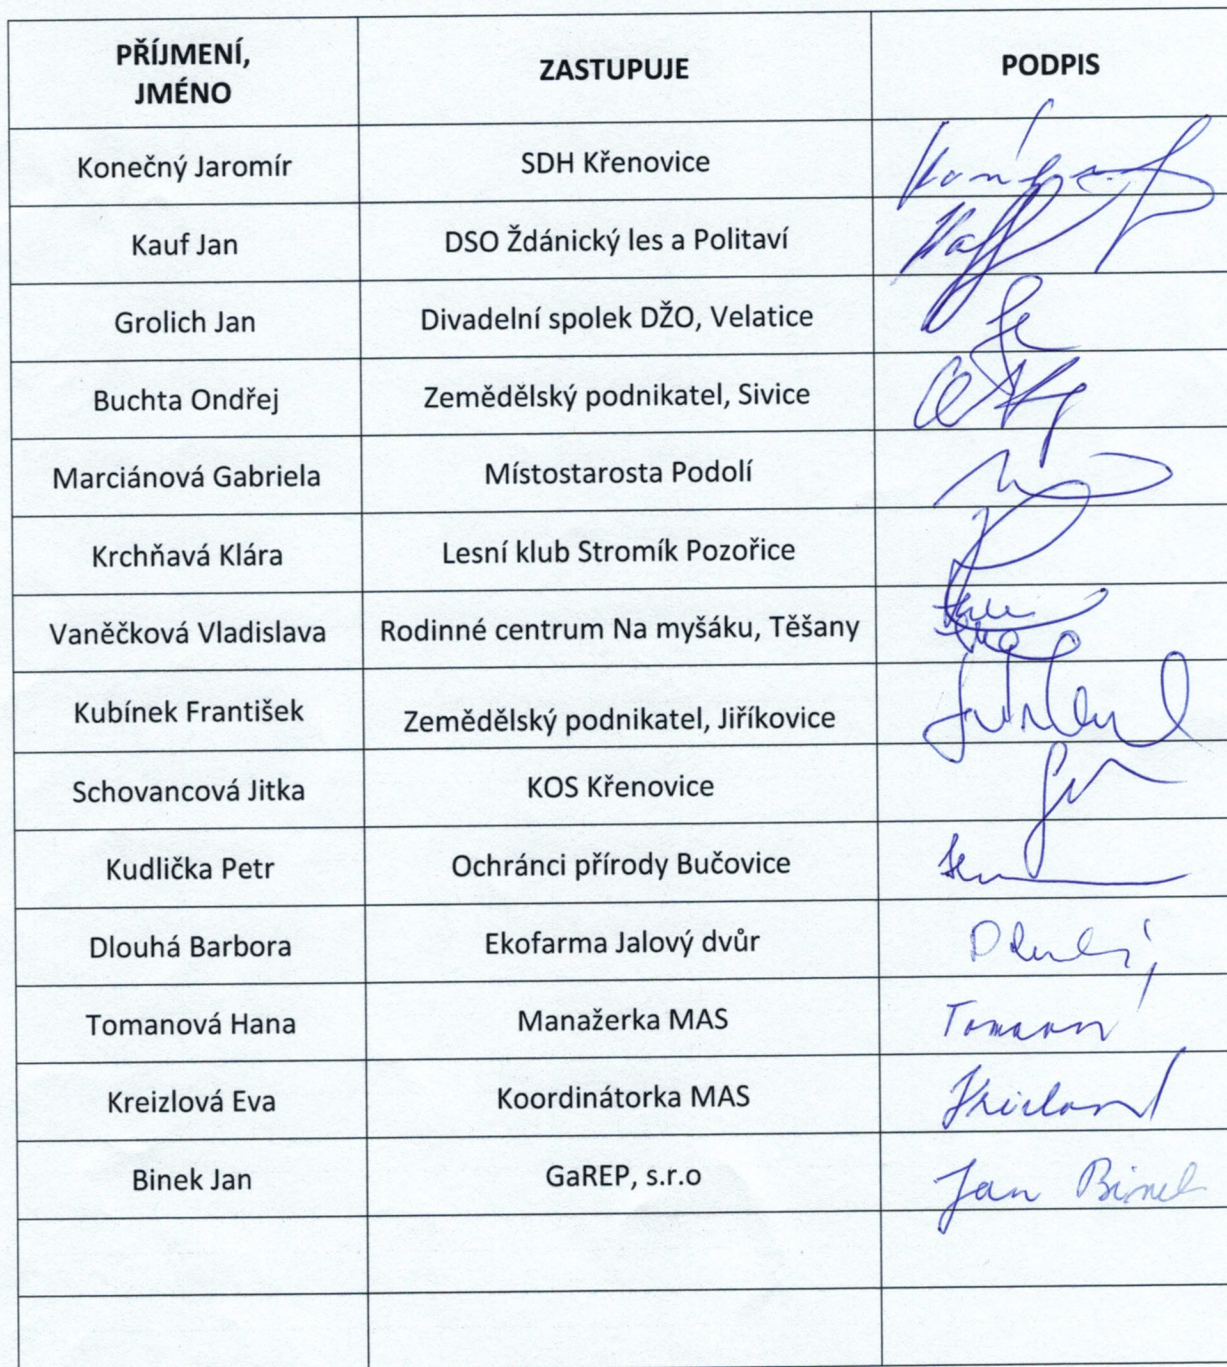 PŘÍJMENÍ,
JMÉNO
ZASTUPUJE
PODPIS
Konečný Jaromír
SDH Křenovice
Kauf Jan
DSO Ždánický les a Politaví
Grolich Jan
Divadelní spolek DŽO, Velatice
Buchta Ondřej
Zemědělský podnikatel, Sivice
Marciánová Gabriela
Místostarosta Podolí
Krchňavá Klára
Lesní klub Stromík Pozořice
Vaněčková Vladislava
Rodinné centrum Na myšáku, Těšany
Kubínek František
Zemědělský podnikatel, Jiříkovice
Schovancová Jitka
KOS Křenovice
Kudlička Petr
Ochránci přírody Bučovice
Dlouhá Barbora
Ekofarma Jalový dvůr
Tomanová Hana
Manažerka MAS
Kreizlová Eva
Koordinátorka MAS
Binek Jan
GaREP, s.r.o
Jan Binek